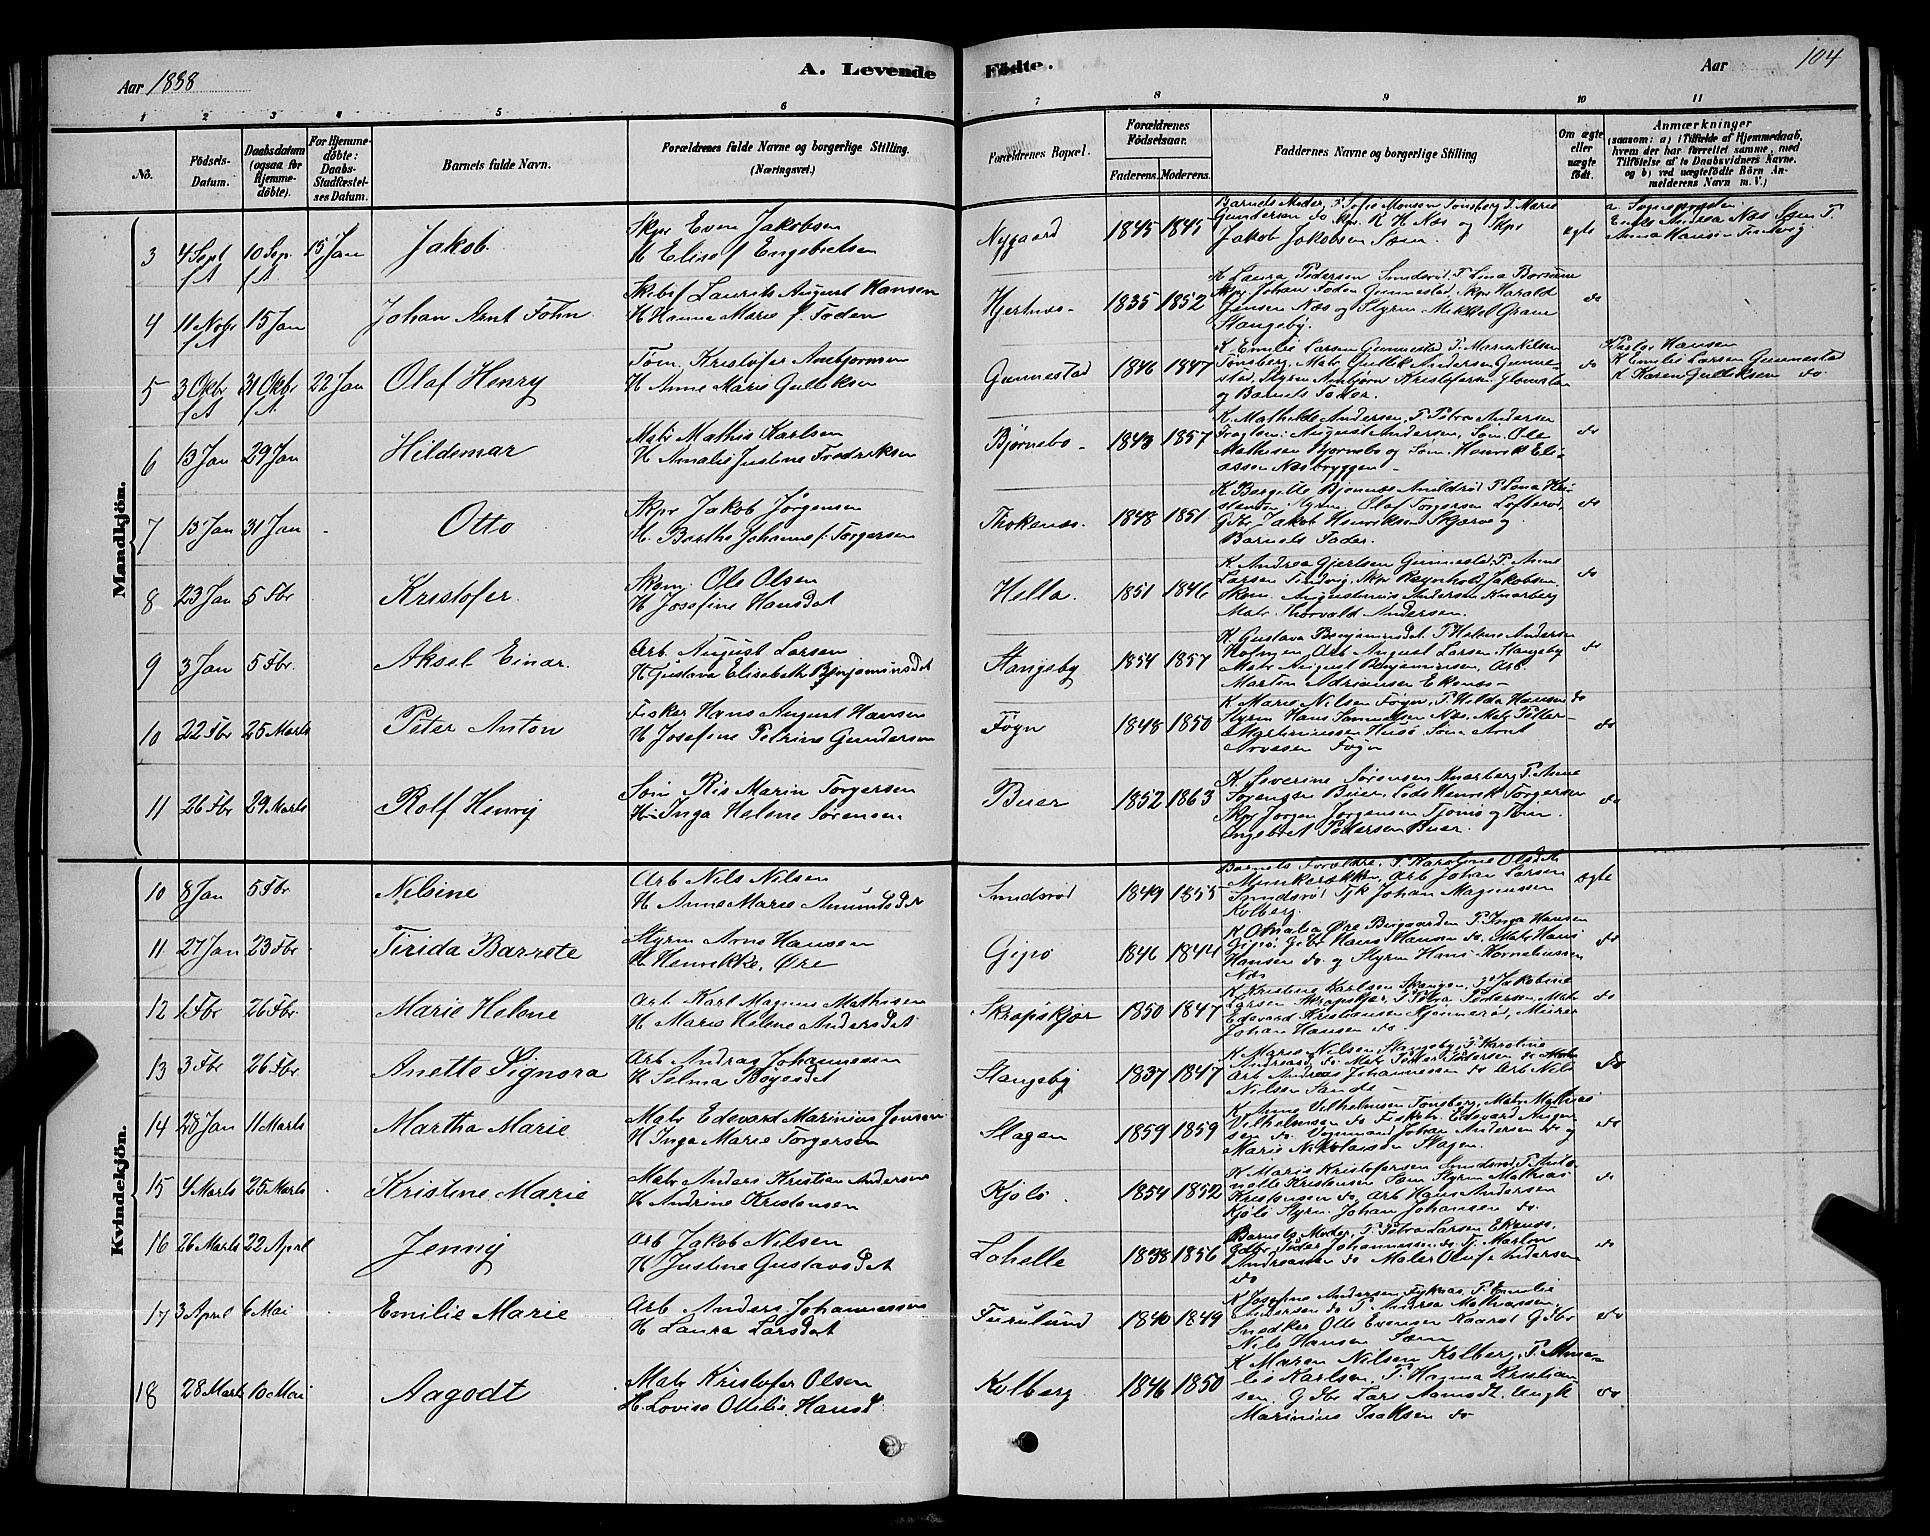 Aar 1888
A. Levende
Fødte.
Aar
104
1 2 3 4 5 6 7 8 9 10 11
No.
Födsels-Datum.
Daabsdatum (ogsaa for Hjemme-döbte).
For Hjemme-döbte: Daabs-Stadfæstel-ses Datum.
Barnets fulde Navn.
Forældrenes fulde Navne og borgerlige Stilling.
(Næringsvei.)
Forældrenes Bopæl.
Forældrenes Födselsaar.
Faderens. Moderens.
Faddernes Navne og borgerlige Stilling
Om ægte eller uægte födt.
Anmærkninger
(saasom: a) i Tilfælde af Hjemmedaab, hvem der har forrettet samme, med Tilföielse af to Daabsvidners Navne, og b) ved uægtefödte Börn Anmelderens Navn m. V.)
Mandkjön.
3 4 Sept f A 10 Sep. f A 15 Jan Jakob
Skpr Even Jakobsen
H Elise f Engebretsen
Nygaard 1845 1845
Barnets Moder, P. Sofie Monsen Tønsberg P. Marie
Gundersen do Skpr. K H. Næs og Skpr
Jakob Jakobsen Sæm.
ægte
Anna Hansen Tindvig.
4 11 Nobr f A 15 Jan Johan Arnt Føhn
Laurits August Hansen
H Hanna Marie f. Foden
Hjertnes 1835 1852
K Laura Pedersen Smidsrød. P. Lina
Skpr Johan Foden Gunnestad, Skpr Harald
Jensen Næs og Styrm Mikkel Gram
Stangeby.
do
5 3 Okbr f A 31 Okbr f A 22 Jan Olaf Henry
Tøm. Kristofer Ambjørnsen
H Anne Marie Gulliksen
Gunnestad 1846 1847
K Emilie Larsen Gunnestad P. Maren Nilsen
Tønsberg, Matr Gullik Andersen Gunne-
stad, Styrm Ambjørn Kristofersen
og Barnets Fader.
do
Hansen
K Emilie Larsen Gunnestad
K Karen Gulliksen do.
6 13 Jan 29 Jan Hildemar
Matr Mathis Karlsen
H Amalie Justine Fredriksen
Bjørnebo 1843 1857
K. Mathilde Andersen, P. Petra Andersen
August Andersen, Tøm. Ole
Mathisen Bjørnebo og Tøm. Henrik Eli-
assen Næsbryggen
do
7 15 Jan 31 Jan Otto
Skpr Jakob Jørgensen
H. Berthe Johanne f. Torgersen
1848 1851
Olaf Torgersen
Gdbr Jakob Henriksen Skjærvig
Barnets Fader.
do
8 23 Jan 5 Fbr Kristofer.
Skom. Ole Olsen
H Josefine Hansdat
Hella. 1851 1846
K Andrea Gjertsen Gunnestad, P. Anne
Larsen Tindvig, Skpr Reynhold Jakobsen,
Skom. Augustinius Andersen Knarberg
Matr. Thorvald Andersen.
do
9 3 Jan 5 Fbr. Aksel Einar.
Arb. August Larsen
H Gustava Elisabeth Benjaminsdat
Stangeby 1854 1857
K. Gustava Benjaminsdat. P. Helene Andersen
Holmen, Arb August Larsen Stangeby
Matr August Benjaminsen, Arb.
Martin Adriansen Ekenes
do
10 22 Fbr 25 Marts Peter Anton
Fisker Hans August Hansen
H Josefine Petrine Gundersen
Føgn 1848 1850
K Marie Nilsen Føgn, P. Hilda Hansen do
Styrm Hans Samuelsen Næs, Matr Petter
Martinussen Husø Tøm. Arnt
Arvesen Føgn
do
11 26 Fbr 29 Marts Rolf Henry
Tøm Ris Marin Torgersen
H Inga Helene Sørensen.
Buer 1852 1863
K Severine Sørensen Knarberg, P. Anne
Sørensen Buer, Lods Henrik Torgersen
Skpr Jørgen Jørgensen Tjømø og Tøm.
Engebret Pedersen Buer.
do
Kvindekjön.
10 8 Jan 5 Fbr Nilsine
Arb Nils Nilsen
H Anne Marie Amundsdat
Smidsrød 1849 1855
Barnets Forældre, P. Karoline Olsdat.
Munkerekken, Arb Johan Larsen
Smidsrød Tjk Johan Magnussen
Kolberg.
ægte
11 27 Jan 23 Fbr Tirida Barrete
Styrm Arne Hansen
H Henrikke, Øre
Gipø 1846 1844
K Amalia Øre Borgaarden P. Inga Hansen
Gipø, Gdbr Hans Hansen do. Matr Hans
Hansen do. og Styrm Hans Kornelissen
Næs
do
12 1 Fbr 26 Fbr Marie Helene
Arb Karl Magnus Mathisen
H Marie Helene Andersdat
Skropskjær 1850 1847
K Kristine Karlsen P. Jakobine
Larsen Skropskjær, P. Petra Pedersen, Matr
Edevard Kristiansen Murer
Johan Hansen do.
do
13 3 Fbr 26 Fbr Anette Signora
Arb Andrag Johannesen
H Selma Bøyesdat
Stangeby 1837 1847
K Marie Nilsen Stangeby, P. Karoline
Andreasd. do. Matr Peder Pedersen do
Arb Andreas Johannessen do Arb Nils
Nilsen Sande
do
14 28 Jan 11 Marts Martha Marie
Matr Edevard Marinius Jensen
H Inga Marie Torgersen
Slagen 1859 1859
K Anne Vilhelmsen Tønsberg, Matr Mathias
Vilhelmsen do Edevard
sen do. Vognmand Johan Andersen do og
Marie Nikolaisen Slagen.
do
15 4 Marts 25 Marts Kristine Marie
Matr Anders Kristian Andersen
H Andrine Kristensen
Kjølø. 1854 1852
K Maris Kristofersen Smidsrød P. Anto-
nette Kristensen Sæm Styrm Mathias
Kristensen do, Arb Hans Andersen
Kjølø Styrm. Johan Johansen do.
do
16 26 Marts 22 April Jenny
Arb Jakob Nilsen
H Justine Gustavsdat
Lohelle 1838 1856
Barnets Moder, P. Petra Larsen Ekenes,
Gdbr Peder Johannessen do. Tj. Martin
Andreasen do Maler Oluf Andersen
do
do
17 3 April 6 Mai Emilie Marie
Arb Anders Johannessen
H Laura Larsdat
Furulund 1840 1849
K Josefine Andersen P. Emilie
Andersen do P. Andrea Mathiassen,
Snedker Olle Evensen Gdbr
Nils Hansen Sæm
do
18 28 Marts 10 Mai Aagodt
Matr Kristofer Olsen
H. Lovise Ottilie Hansd.
Kolberg 1846 1850
K Maren Nilsen Kolberg, P. Ama-
lie Karlsen, P. Hanna Kristian
sen, Gdbr Lars Aamodt, Ungk
Marinius Isaksen do
do